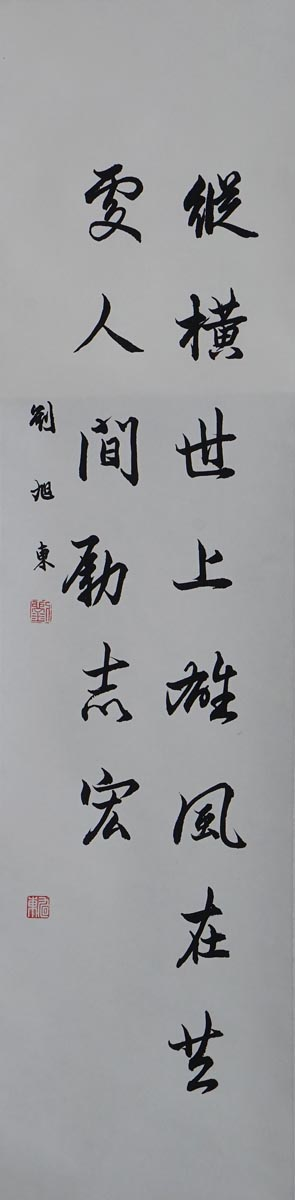 縱橫世上雄風在共
處人間励志宏
劉旭東